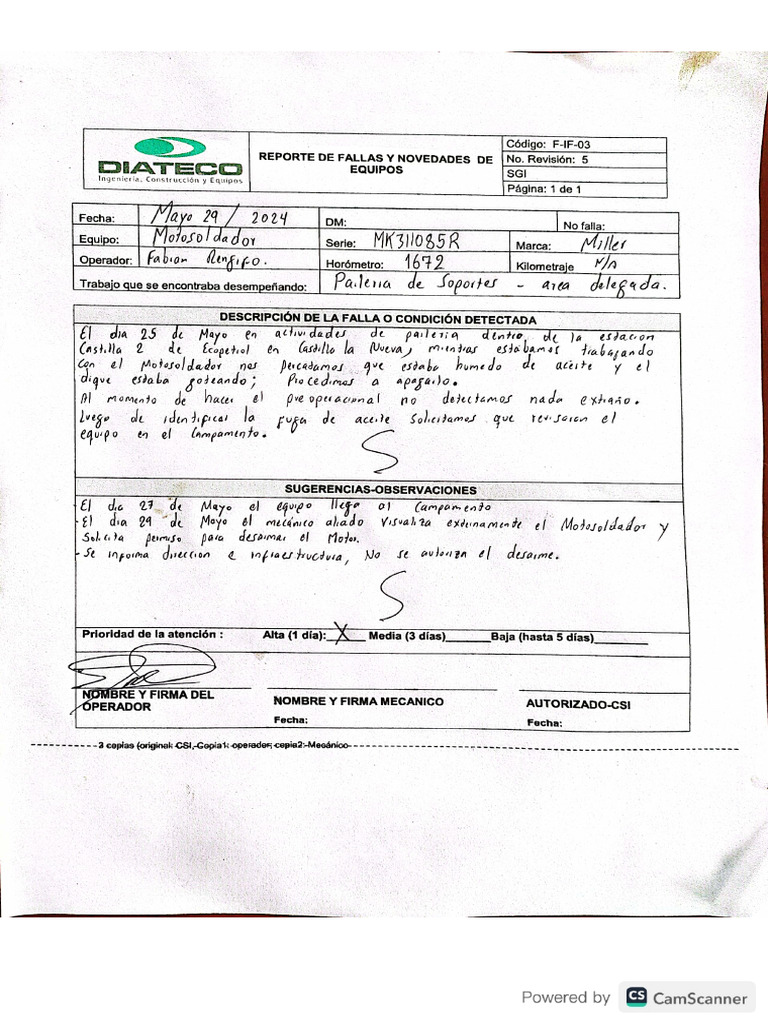 DIATECO
Ingeniería, Construcción y Equipos
REPORTE DE FALLAS Y NOVEDADES DE
EQUIPOS
Código: F-IF-03
No. Revisión: 5
SGI
Página: 1 de 1
Fecha: Mayo 29 / 2024 DM: No falla:
Equipo: Motosoldador Serie: MK311085R Marca: Miller
Operador: Fabian Rengifo. Horómetro: 1672 Kilometraje N/A
Trabajo que se encontraba desempeñando: Paileria de Soportes - area delegada.
DESCRIPCIÓN DE LA FALLA O CONDICIÓN DETECTADA
El dia 25 de Mayo en actividades de paileria dentro de la estacion
Castilla 2 de Ecopetrol en Castilla la Nueva, mientras estabamos trabajando
con el Motosoldador nos percatamos que estaba humedo de aceite y el
dique estaba goteando; Procedimos a apagarlo.
Al momento de hacer el preoperacional no detectamos nada extraño.
Luego de identificar la fuga de aceite solicitamos que revisaran el
equipo en el campamento.
SUGERENCIAS-OBSERVACIONES
- El dia 27 de Mayo el equipo llega al Campamento
- El dia 29 de Mayo el mecánico aliado visualiza externamente el Motosoldador y
Solicita permiso para desarmar el Motor.
- Se informa direccion e infraestructura, No se autoriza el desarme.
Prioridad de la atención : Alta (1 día):__X__ Media (3 días)_______Baja (hasta 5 días)________
NOMBRE Y FIRMA DEL
OPERADOR
NOMBRE Y FIRMA MECANICO
Fecha:
AUTORIZADO-CSI
Fecha:
3 copias (original: CSI, Copia1: operador, copia2: Mecánico
Powered by CS CamScanner